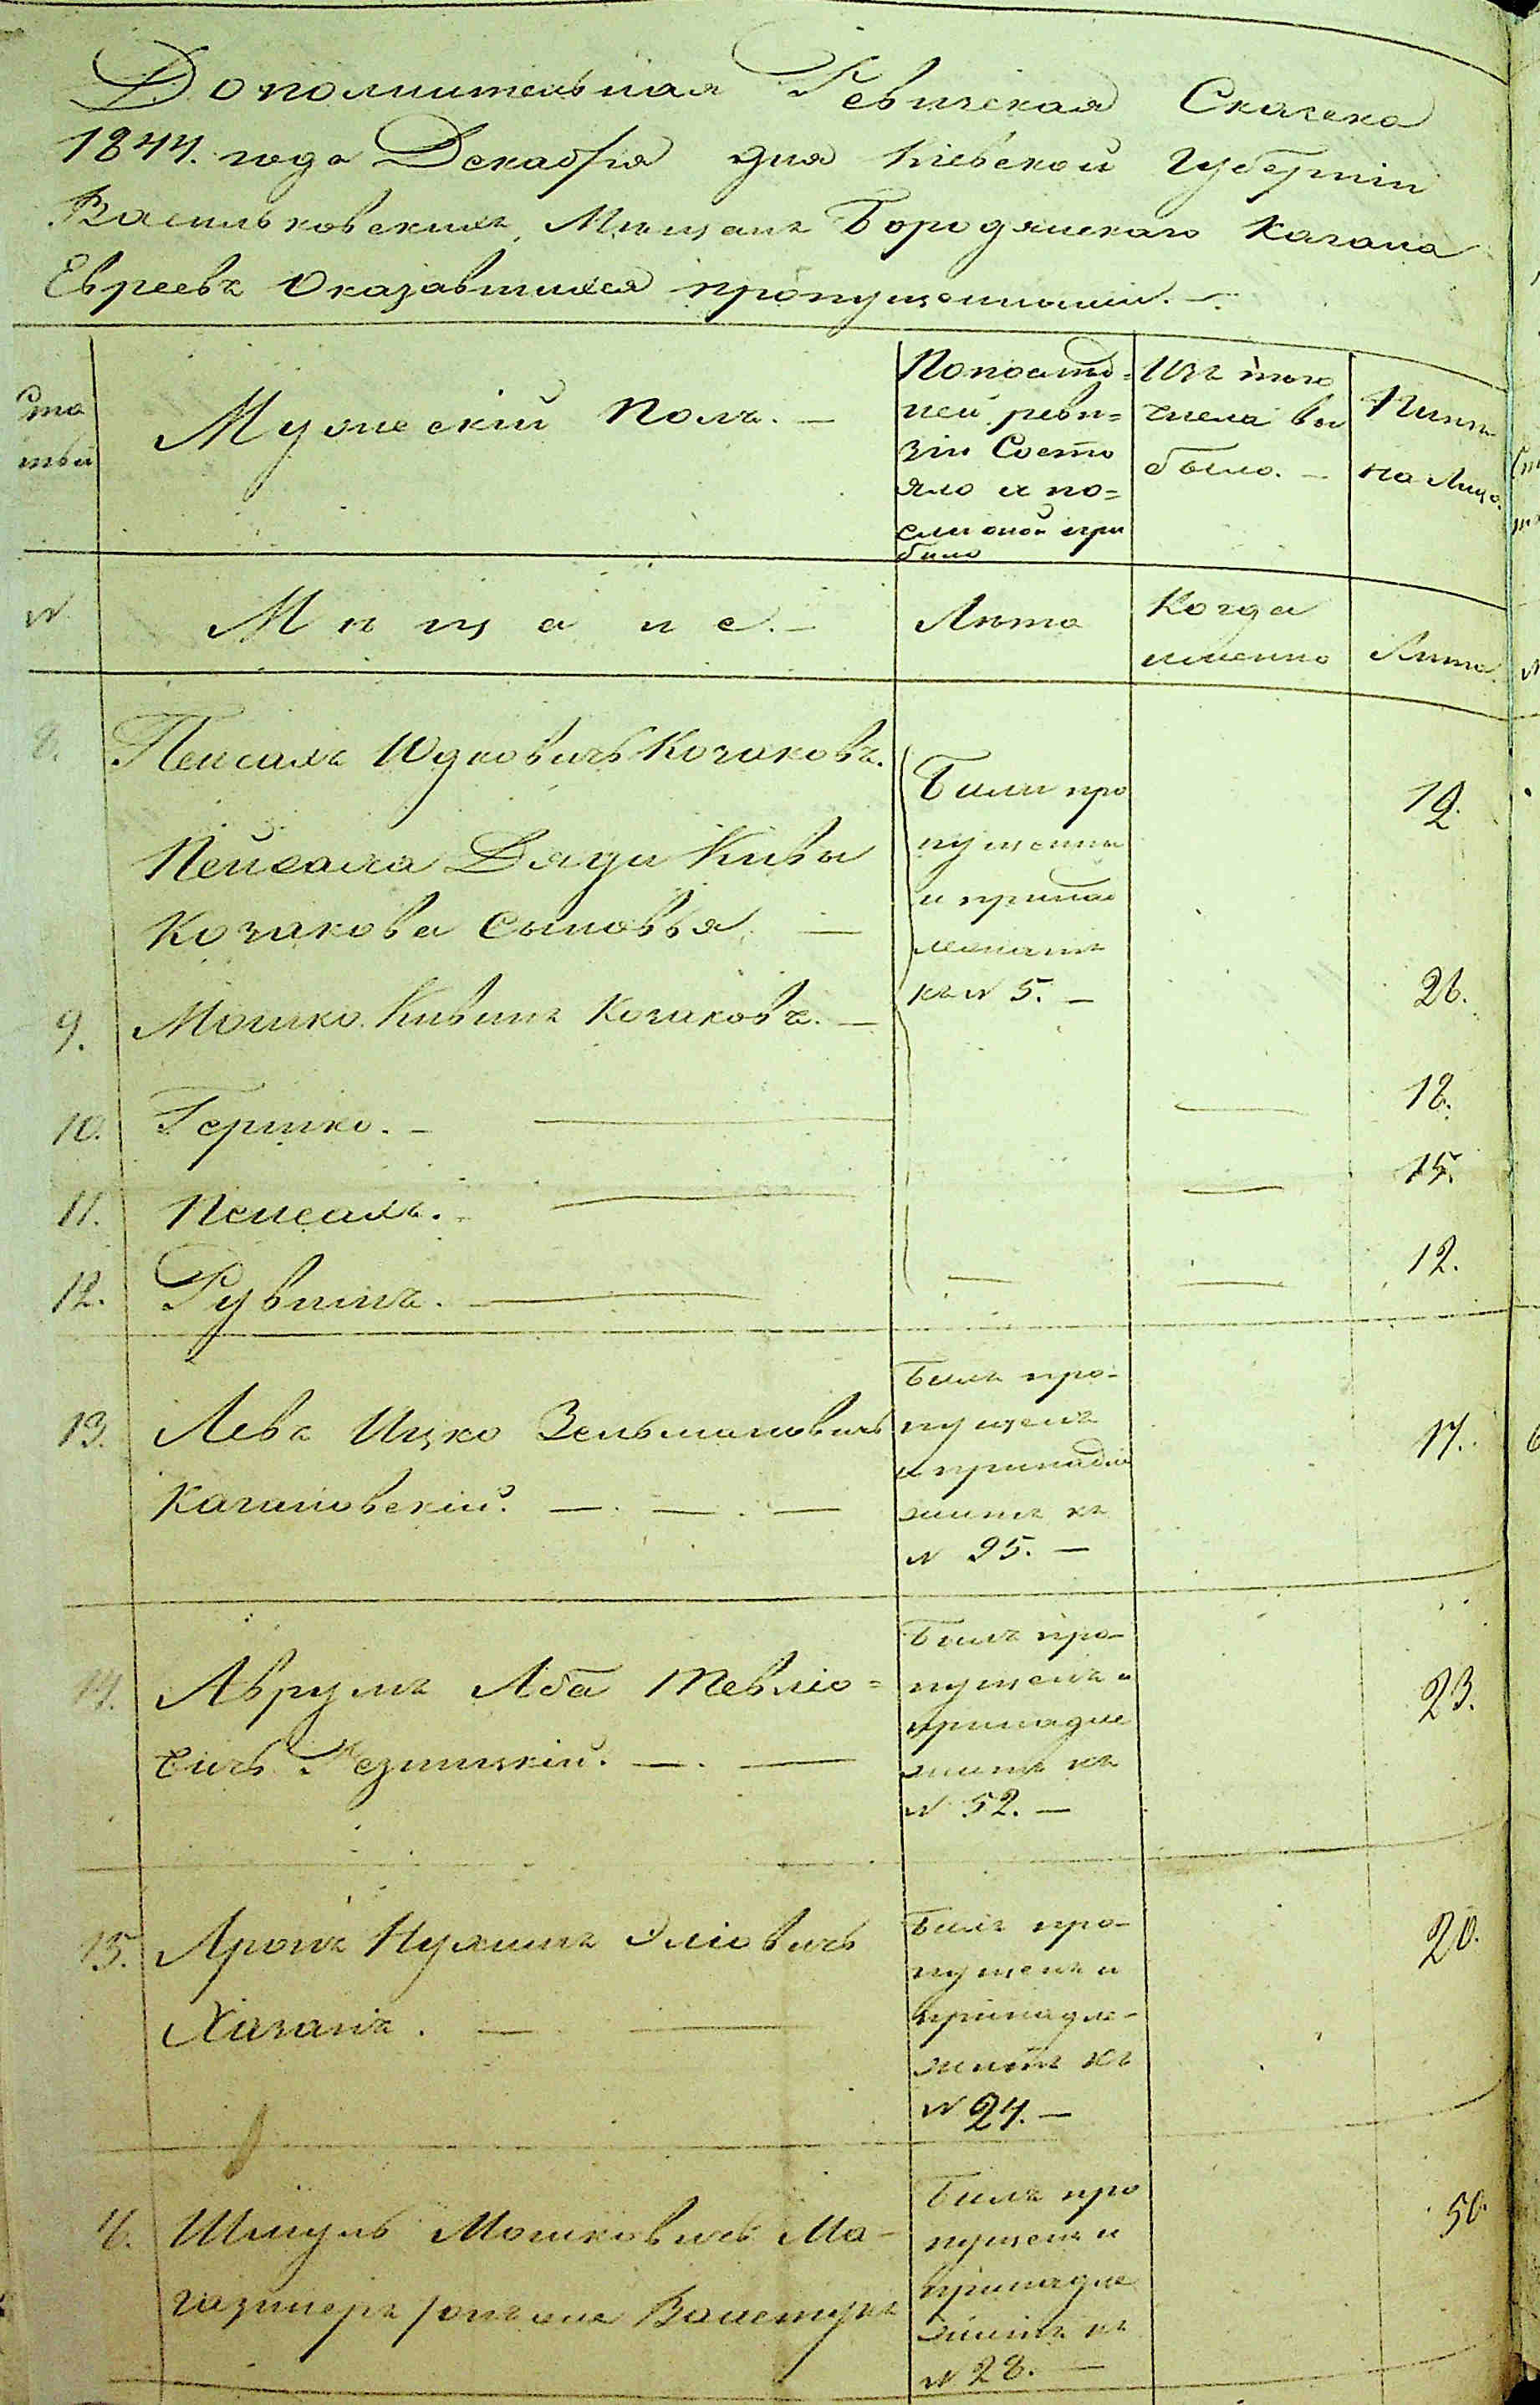 Дополнительная Ревизская Сказка
1844. года Декабря дня Кіевской Губерніи
Васильковскихъ Мѣщанъ Бородянскаго Кагала
Евреевъ Оказавшихся пропущенными. —
Ста
тьи
Мужескій Полъ. —
По послѣд=
ней реви=
зіи Состо
яло и по=
слѣ оной при
било
Изъ того
числа вы
было. —
Нинѣ
на Лицо.
N
Мѣщане. —
Лѣта
Когда
именно
Лѣта.
8. Пейсахъ Юдковичъ Козаковъ. 19.
Били про
пущенны
и принад
лежатъ
къ N 5. —
Пейсаха Дяди Кивы
Козакова Сыновья. —
9. Мошко Кивинъ Козаковъ. — 26.
10. Гершко. — 18.
11. Пейсахъ. 15.
12. Рувинъ. 12.
13. Левъ Ицко Зельмановичъ 17.
Кагановскій. — . — . —
Билъ про-
пущенъ
и принадле
житъ къ
N 25. —
14. Аврумъ Аба Тевліо= 23.
вичъ . — . —
Билъ про-
пущенъ и
принадле
житъ къ
N 52. —
15. Аронъ Нухимъ Эліовичъ 20.
Хазанъ. — —
Билъ про-
пущенъ и
принадле-
житъ къ
N 24. —
16. Шмуль Мошковичъ Ма- 50.
газинеръ онъ же
Билъ про
пущенъ и
принадле
житъ къ
N 28. —